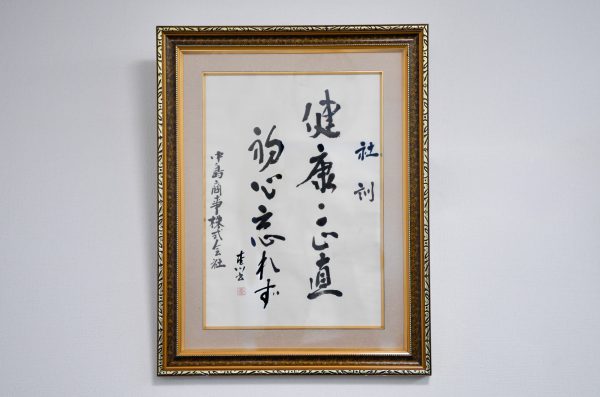 社訓
健康・正直
初心忘れず
中島商事株式会社